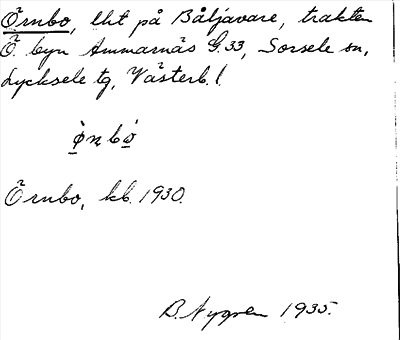 Örnbo, lht på Båljavare, trakten
Ö. byn Ammarnäs G.33, Sorsele sn,
Lycksele tg, Västerb. l.
ö̀nbo
Örnbo, kb. 1930.
B. Nygren 1935.